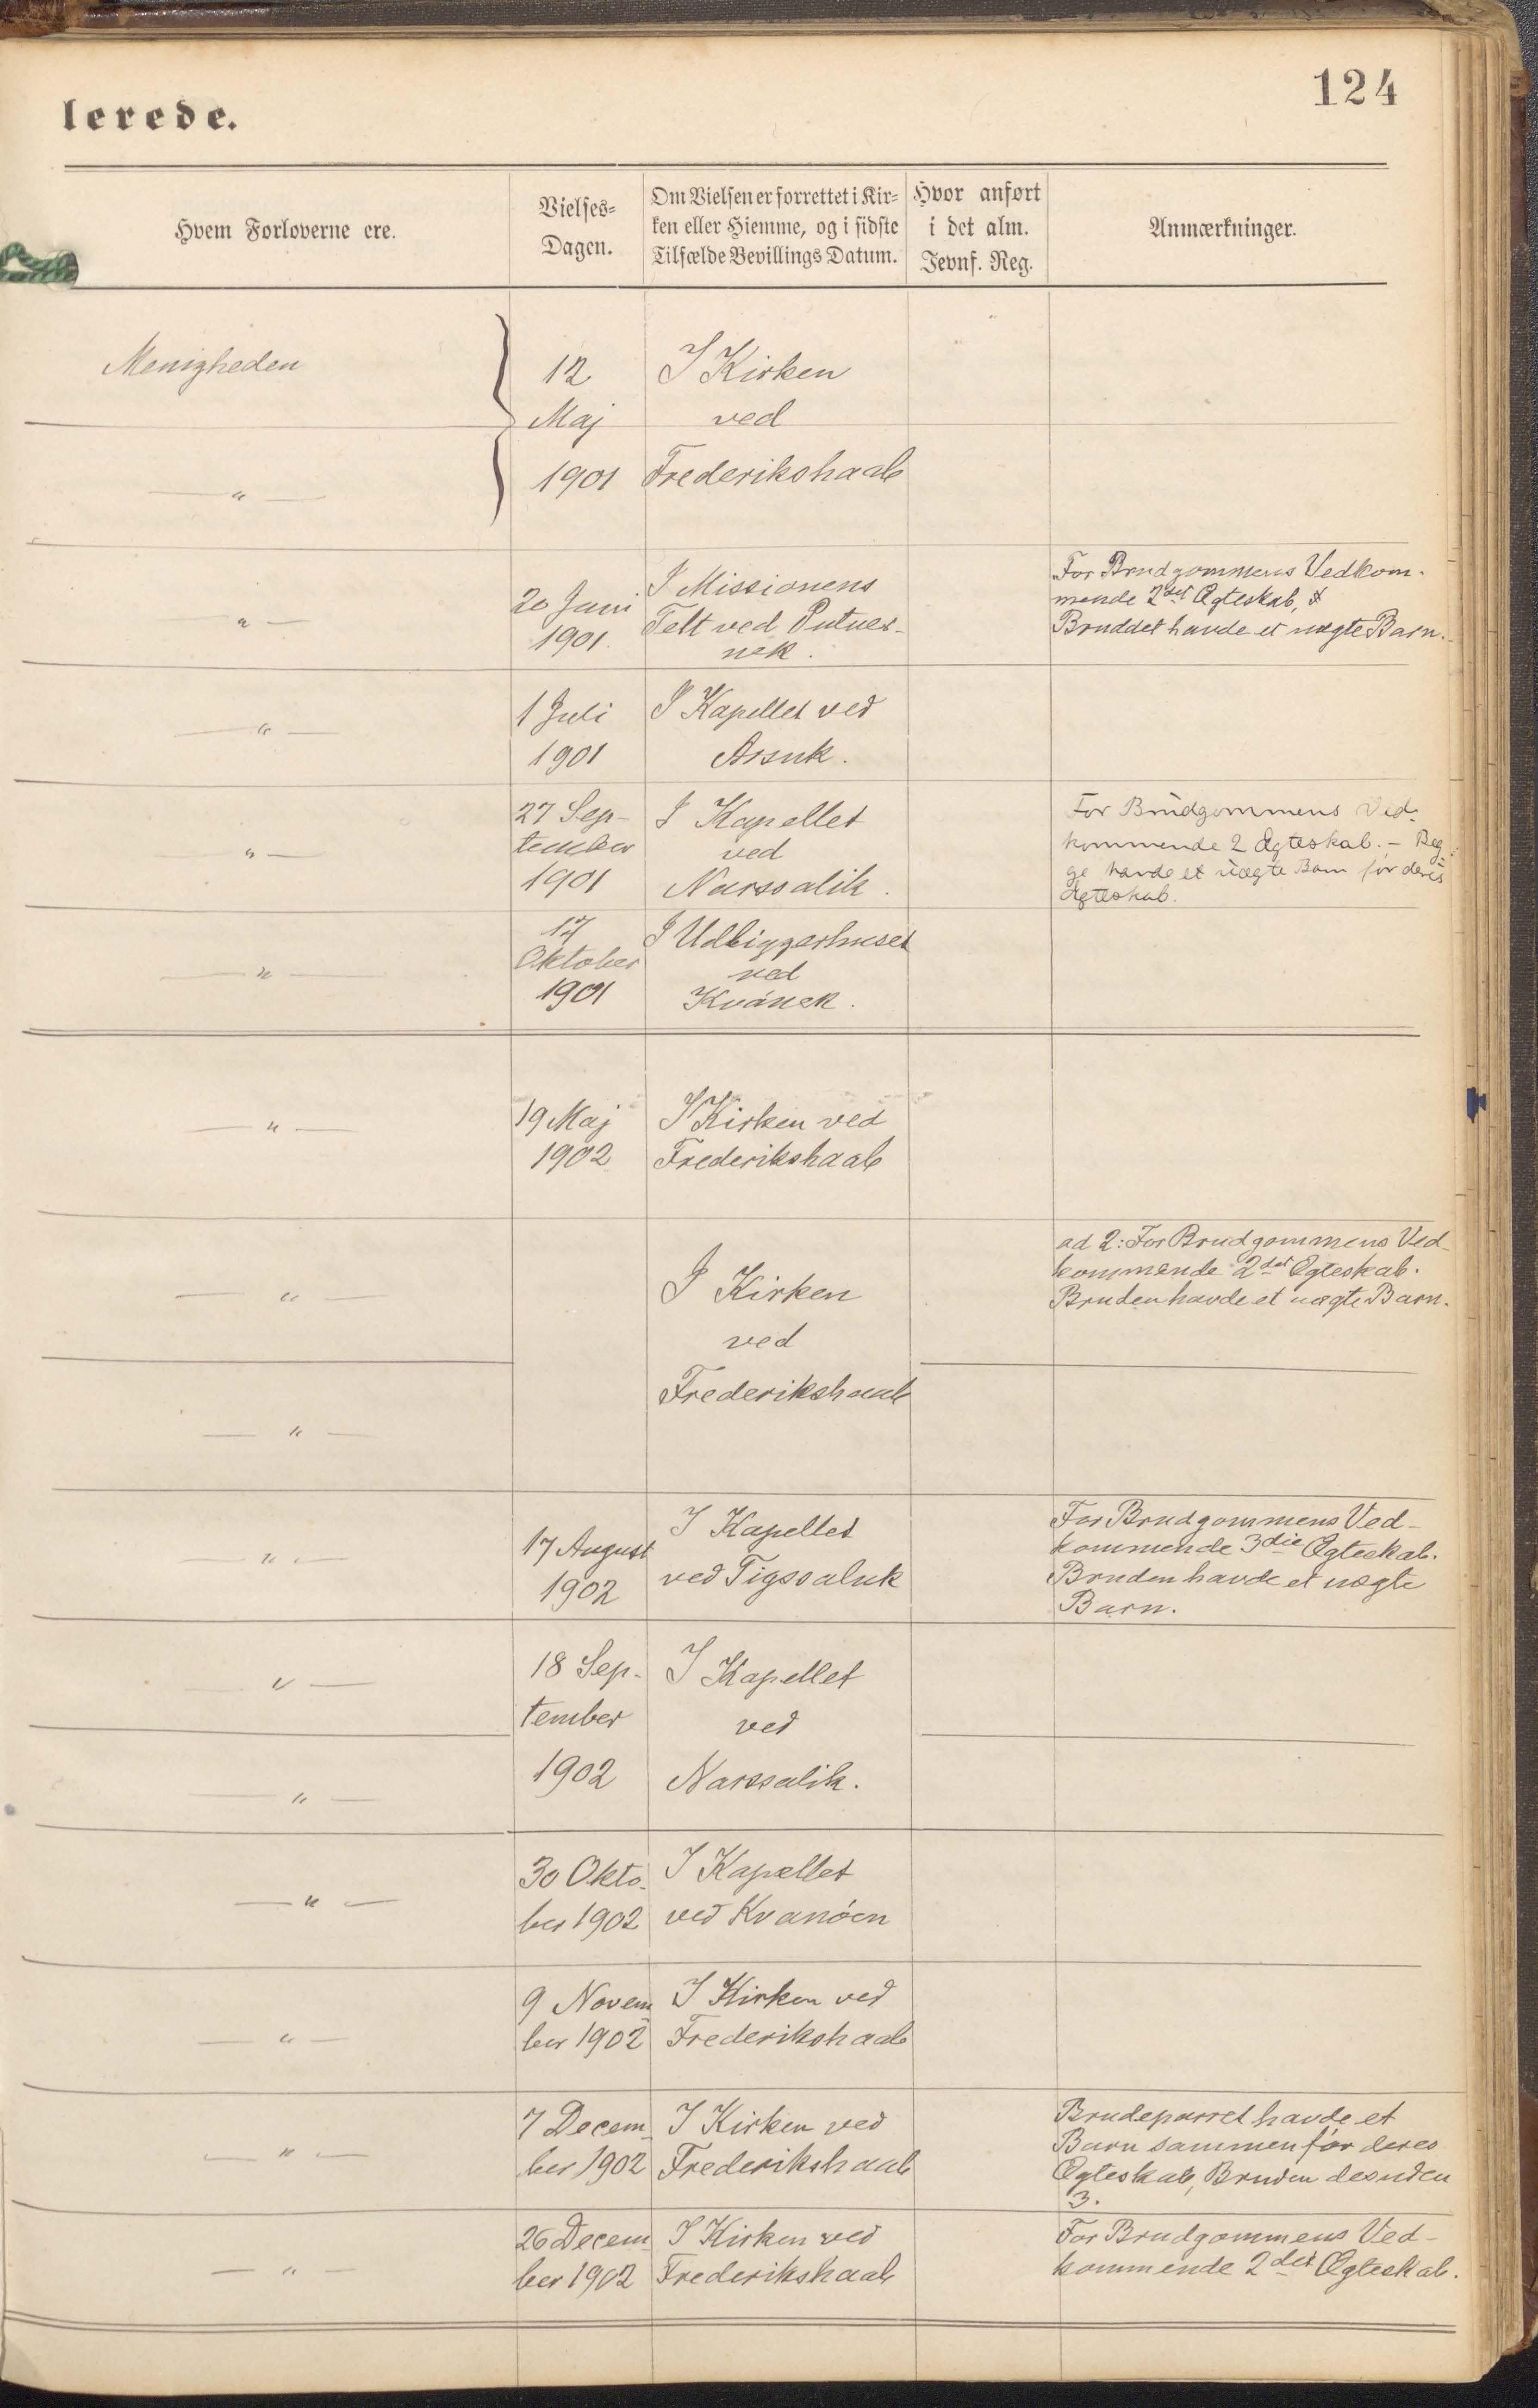 124
lerede.
Hvem Forloverne ere.
Vielses-
Dagen.
Om Vielsen er forrettet i Kir-
ken eller Hiemme, og i sidste
Tilfælde Bevillings Datum.
Hvor anført
i det alm.
Jevnf. Reg.
Anmærkninger.
Menigheden
12
Maj
1901
I Kirken
ved
Frederikshaab
— " —
— " —
20 Juni
1901.
I Missionens
Telt ved Putuer-
nek.
For Brudgommens Vedkom-
mende 2det Ægteskab,
Bruddet havde et uægte Barn.
— " —
1 Juli
1901
I Kapellet ved
Arsuk.
— " —
27 Sep-
tember
1901
I Kapellet
ved
Narssalik.
For Brudgommens Ved-
kommende 2 Ægteskab. – Beg-
ge havde et uægte Barn før deres
Ægteskab.
— " —
17
Oktober
1901
I Udliggerhuset
ved
Kvánek.
— " —
19 Maj
1902
I Kirken ved
Frederikshaab
— " —
I Kirken
ved
Frederikshaab
ad 2: For Brudgommens Ved-
kommende 2det Ægteskab.
Bruden havde et uægte Barn.
— " —
— " —
17 August
1902
I Kapellet
ved Tigssaluk
For Brudgommens Ved-
kommende 3die Ægteskab.
Bruden havde et uægte
Barn.
— " —
18 Sep-
tember
1902
I Kapellet
ved
Narssalik.
— " —
— " —
30 Okto-
ber 1902
I Kapellet
ved Kvanöen
— " —
9 Novem-
ber 1902
I Kirken ved
Frederikshaab
— " —
7 Decem-
ber 1902
I Kirken ved
Frederikshaab
Brudeparret havde et
Barn sammen før deres
Ægteskab, Bruden desuden
3.
— " —
26 Decem
ber 1902
I Kirken ved
Frederikshaab
For Brudgommens Ved-
kommende 2det Ægteskab.